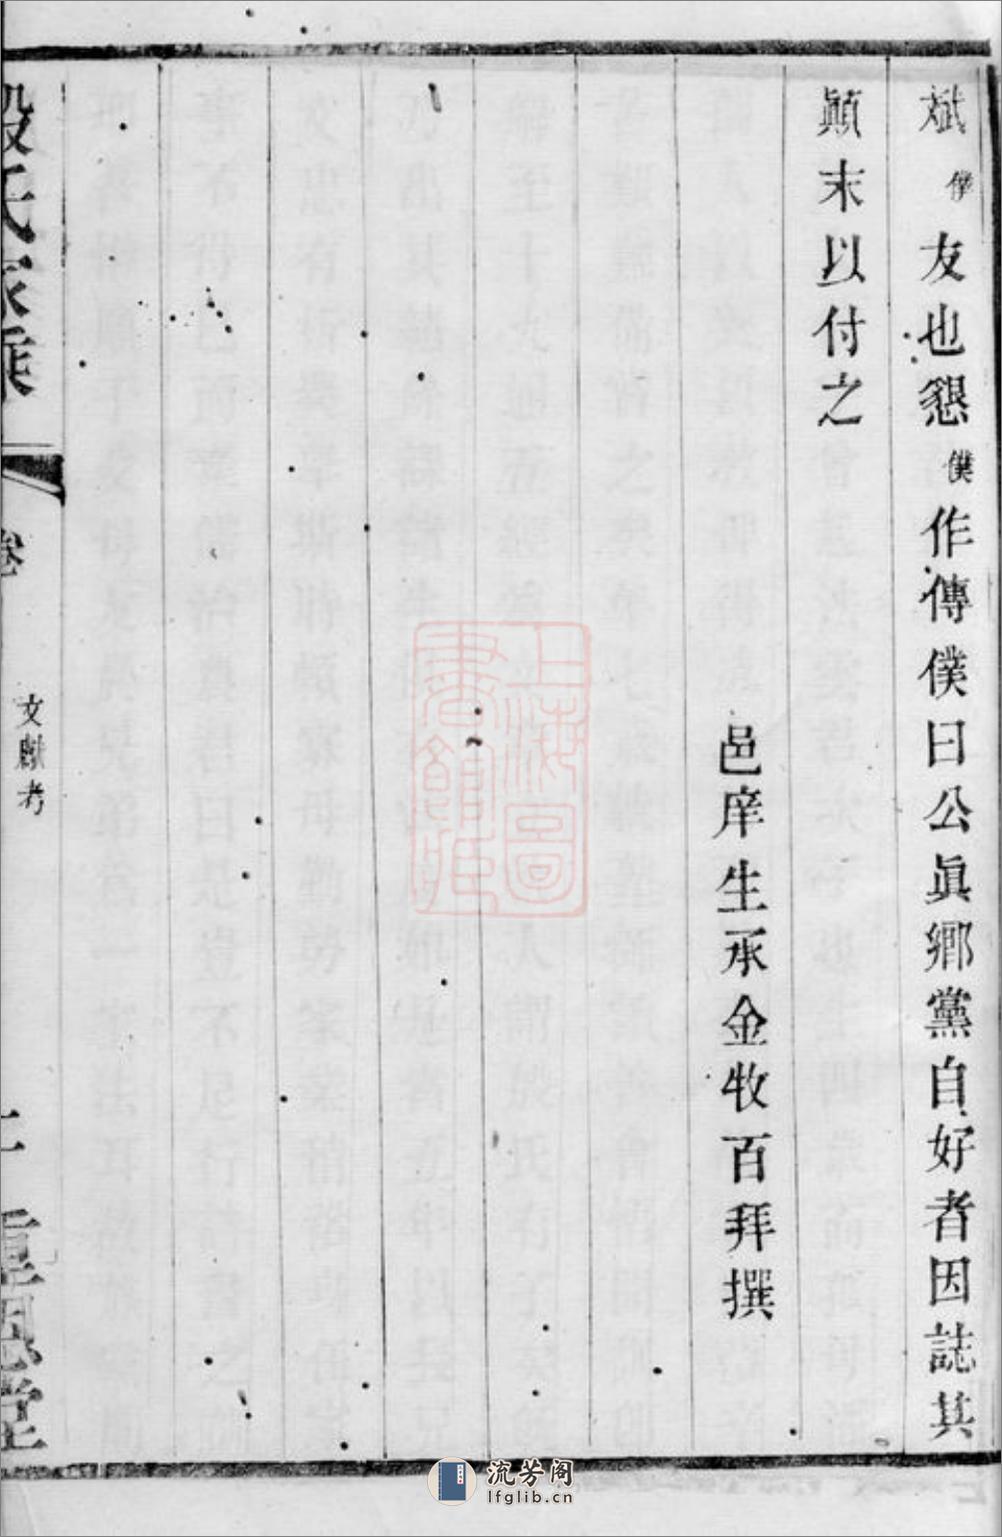 斌僕友也懇僕作傳僕曰公眞鄉黨自好者因誌其
顚末以付之
邑庠生承金牧百拜撰
殷氏家乘
卷
文獻考
上海圖書館藏
流芳阁
lfglib.cn